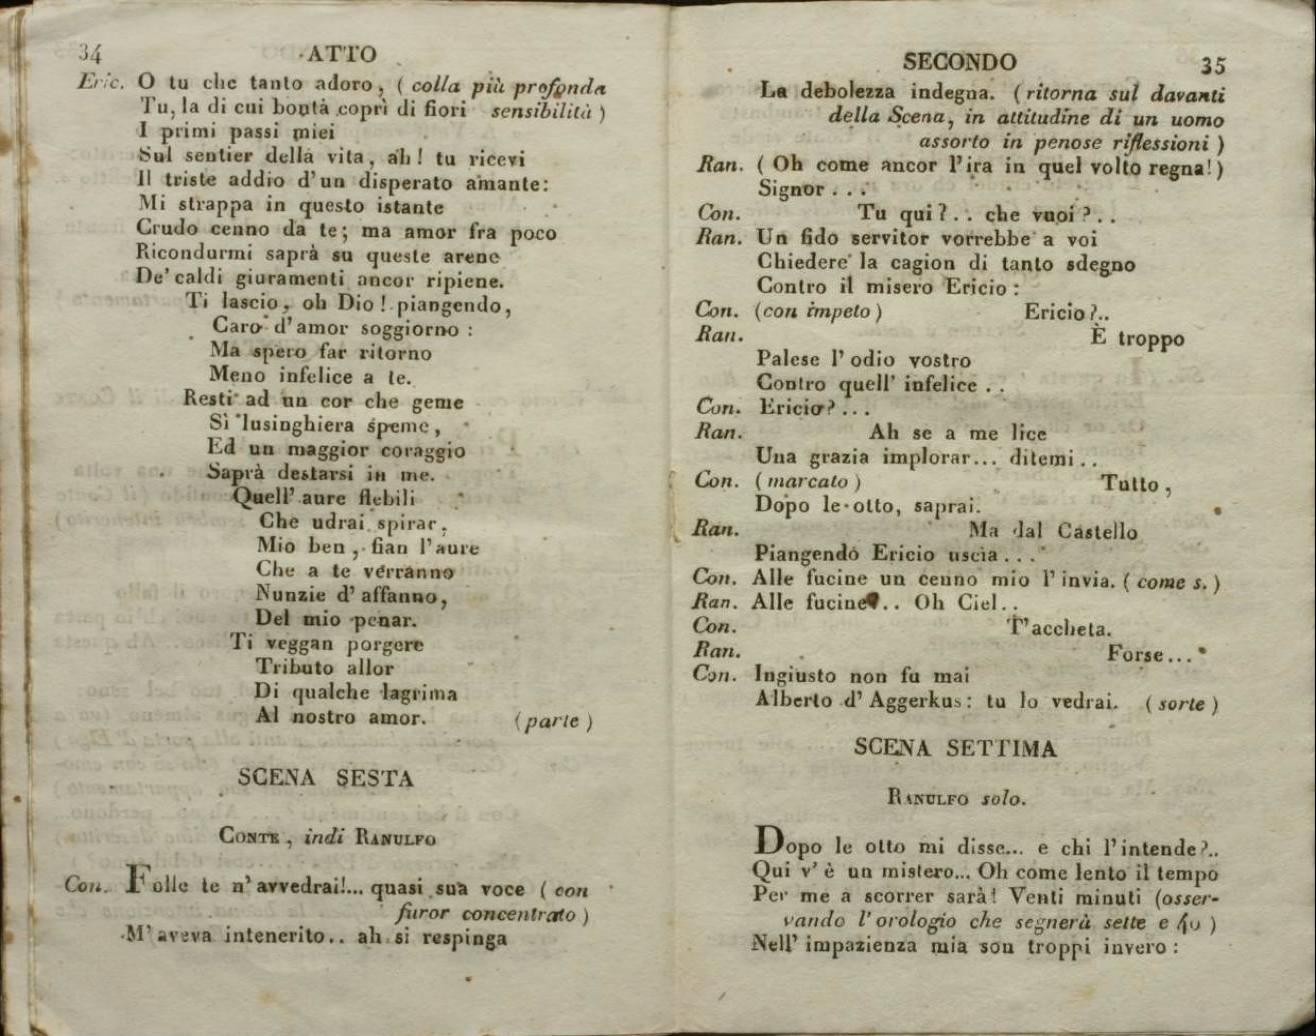 34
ATTO
Eric. O tu che tanto adoro, (colla più profonda
Tu, la di cui bontà coprì di fiori sensibilità)
I primi passi miei
Sul sentier della vita, ah! tu ricevi
Il triste addio d'un disperato amante:
Mi strappa in questo istante
Crudo cenno da te; ma amor fra poco
Ricondurmi saprà su queste arene
De' caldi giuramenti ancor ripiene.
Ti lascio, oh Dio! piangendo,
Caro d'amor soggiorno:
Ma spero far ritorno
Meno infelice a te.
Resti ad un cor che geme
Sì lusinghiera speme,
Ed un maggior coraggio
Saprà destarsi in me.
Quell' aure flebili
Che udrai spirar,
Mio ben, fian l'aure
Che a te verranno
Nunzie d'affanno,
Del mio penar.
Ti veggan porgere
Tributo allor
Di qualche lagrima
Al nostro amor. (parte)
SCENA SESTA
CONTE, indi RANULFO
Con. Folle te n'avvedrai!... quasi sua voce (con
furor concentrato)
M'aveva intenerito.. ah si respinga
SECONDO
35
La debolezza indegna. (ritorna sul davanti
della Scena, in attitudine di un uomo
assorto in penose riflessioni)
Ran. (Oh come ancor l'ira in quel volto regna!)
Signor...
Con. Tu qui?.. che vuoi?..
Ran. Un fido servitor vorrebbe a voi
Chiedere la cagion di tanto sdegno
Contro il misero Ericio:
Con. (con impeto) Ericio?..
Ran. È troppo
Palese l'odio vostro
Contro quell' infelice..
Con. Ericio?...
Ran. Ah se a me lice
Una grazia implorar... ditemi..
Con. (marcato) Tutto,
Dopo le otto, saprai.
Ran. Ma dal Castello
Piangendo Ericio uscìa...
Con. Alle fucine un cenno mio l'invia. (come s.)
Ran. Alle fucine?.. Oh Ciel..
Con. T'accheta.
Ran. Forse...
Con. Ingiusto non fu mai
Alberto d'Aggerkus: tu lo vedrai. (sorte)
SCENA SETTIMA
RANULFO solo.
Dopo le otto mi disse... e chi l'intende?..
Qui v'è un mistero... Oh come lento il tempo
Per me a scorrer sarà! Venti minuti (osser-
vando l'orologio che segnerà sette e 40)
Nell' impazienza mia son troppi invero: